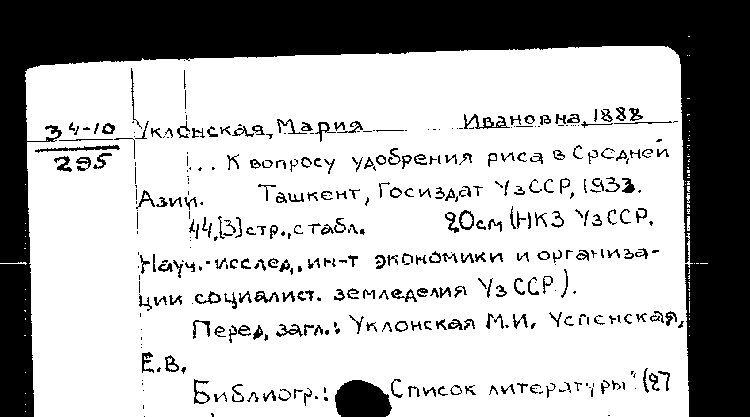 34-10 Уклонская, Мария Ивановна, 1888
295
... К вопросу удобрения риса в Средней
Азии. Ташкент, Госиздат УзССР, 1933.
44,[3] стр., с табл. 20см (НКЗ УзССР.
Науч.-исслед. ин-т экономики и организа-
ции социалист. земледелия УзССР).
Перед загл.: Уклонская М.И. Успенская,
Е.В.
Библиогр.: „Список литературы" (27